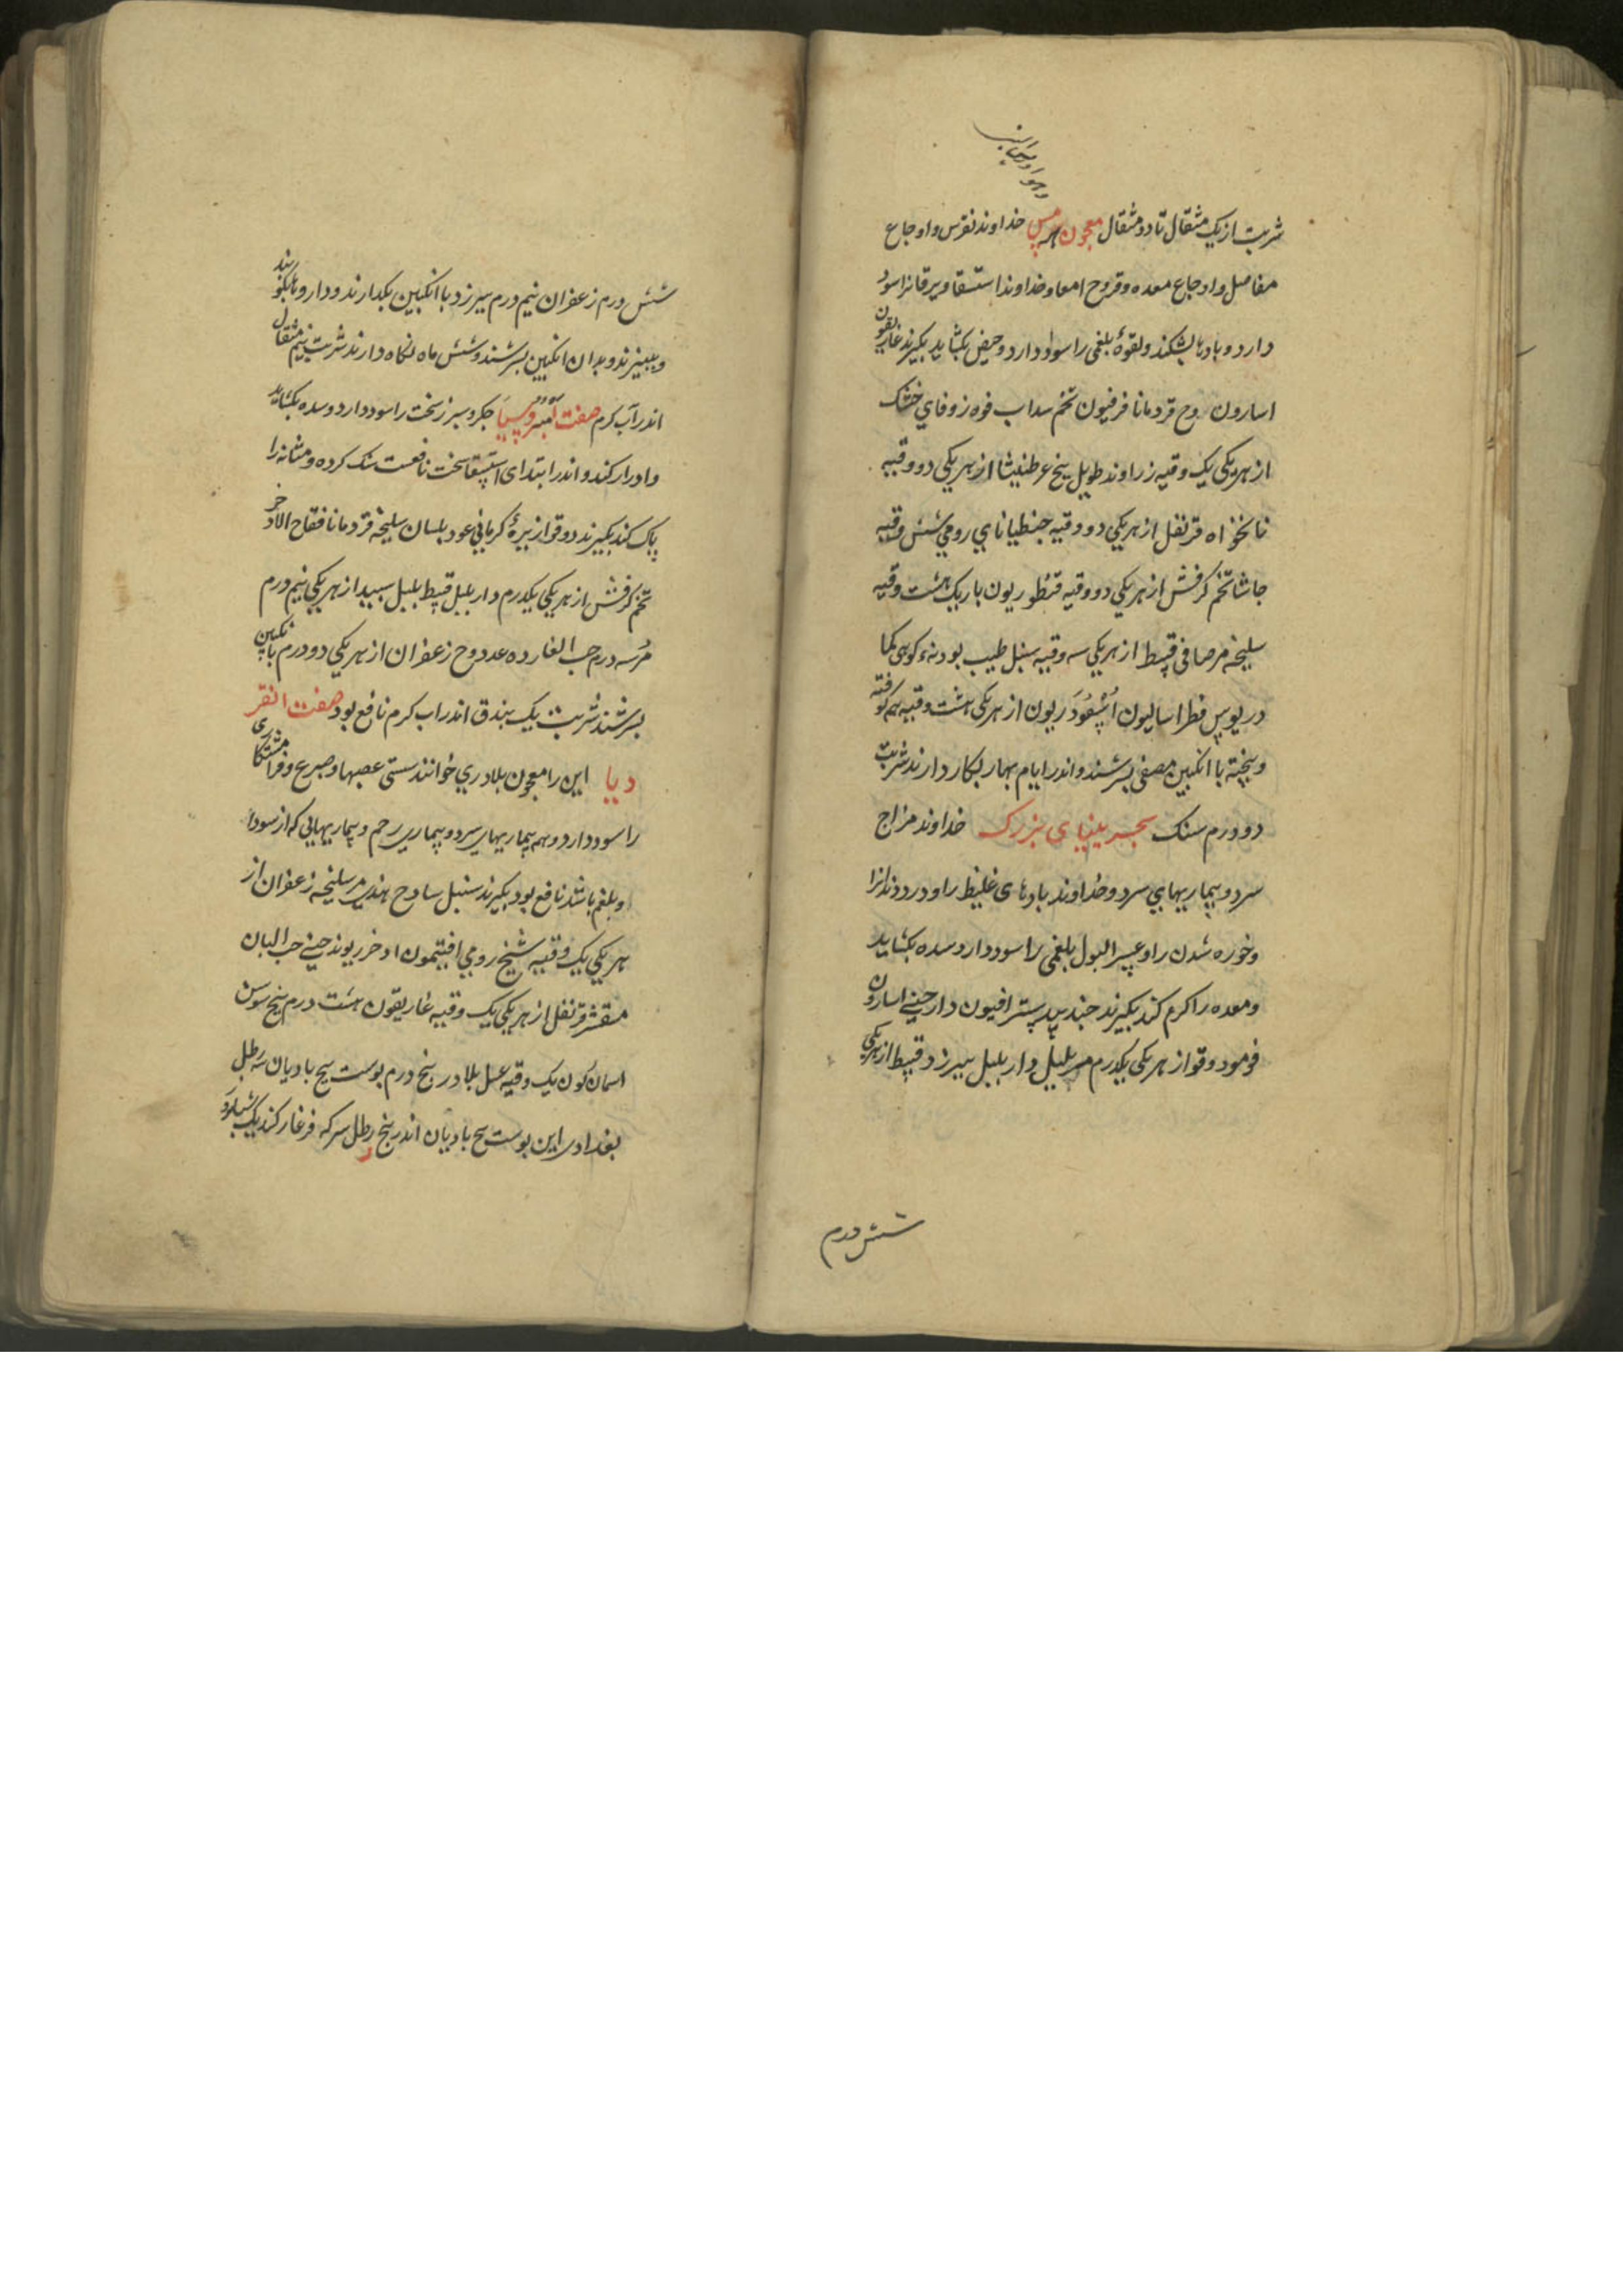 شربت از یک مثقال تا دو مثقال معجون هرمس خداوند نقرس و اوجاع
مفاصل و اوجاع معده و قروح امعا و خداوند استسقا و یرقانرا سود
دارد و بادها بشکند و لقوهٔ بلغمی را سود دارد و حیض بکشاید بکیرند غاریقون
اسارون وج قردمانا فرفیون تخم سداب فوه زوفای خشک
از هر یکی یک وقیه زراوند طویل بیخ عرطنیثا از هر یکی دو وقیه
نانخواه قرنفل از هر یکی دو وقیه جنطیانای رومی شش وقیه
حاشا تخم کرفش از هر یکی دو وقیه قنطوریون باریک هشت وقیه
سلیخه مر صافی قسط از هر یکی سه وقیه سنبل طیب بودنه کوهی کما
دریوس فطراسالیون اسقوردیون از هر یکی هشت وقیه همه کوفته
و بیخته با انکبین مصفی بسرشند و اندر ایام بهار بکار دارند شربت
دو درم سنک سجزینیای بزرک خداوند مزاج
سرد و بیماریهای سرد و خداوند بادهای غلیظ را و درد دندانرا
و خوره شدن را و عسر البول بلغمی را سود دارد سده بکشاید
و معده را کرم کند بکیرند جندبیدستر افیون دارچینی اسارون
فو مو دوقو از هر یکی یکدرم مر بلبل دار بلبل بیرزد قسط از هر یکی
شش درم
شش درم زعفران نیم درم بیرزد با انکبین بکدازند و داروها بکوبند
و ببیزند و بدان انکبین بسرشند و شش ماه نکاه دارند شربت نیم مثقال
اندر آب کرم صفت جکر و سبرز سخت را سود دارد و سده بکشاید
و ادرار کند و اندر ابتدای استسقا سخت نافعست سنک کرده و مثانه را
پاک کند بکیرند دوقو از بیرهٔ کرمانی عود بلسان سلیخه قردمانا فقاح الاذخر
تخم کرفش از هر یکی یکدرم دار بلبل قسط بلبل سبید از هر یکی نیم درم
مر سه درم حب الغار ده عدد وج زعفران از هر یکی دو درم با انکبین
بسرشند شربت یک بندق اندر اب کرم نافع بود صفت انقر
دیا این را معجون بلادری خوانند سستی عصبها و صرع و فراموشکاری
را سود دارد و همه بیماریهای سرد و بیماری رحم و بیماریهایی که از سودا
و بلغم باشد نافع بود بکیرند سنبل سادج هندی مر سلیخه زعفران از
هر یکی یک وقیه شیخ رومی افیتمون اذخر ریوند چینی حب البان
مقشر قرنفل از هر یکی یک وقیه غاریقون هشت درم بیخ سوسن
اسمان کون یک وقیه عسل بلادر بنج درم بوست بیخ بادیان سه رطل
بغدادی این بوست بیخ بادیان اندر بنج رطل سرکه فرغار کند یک شبانروز